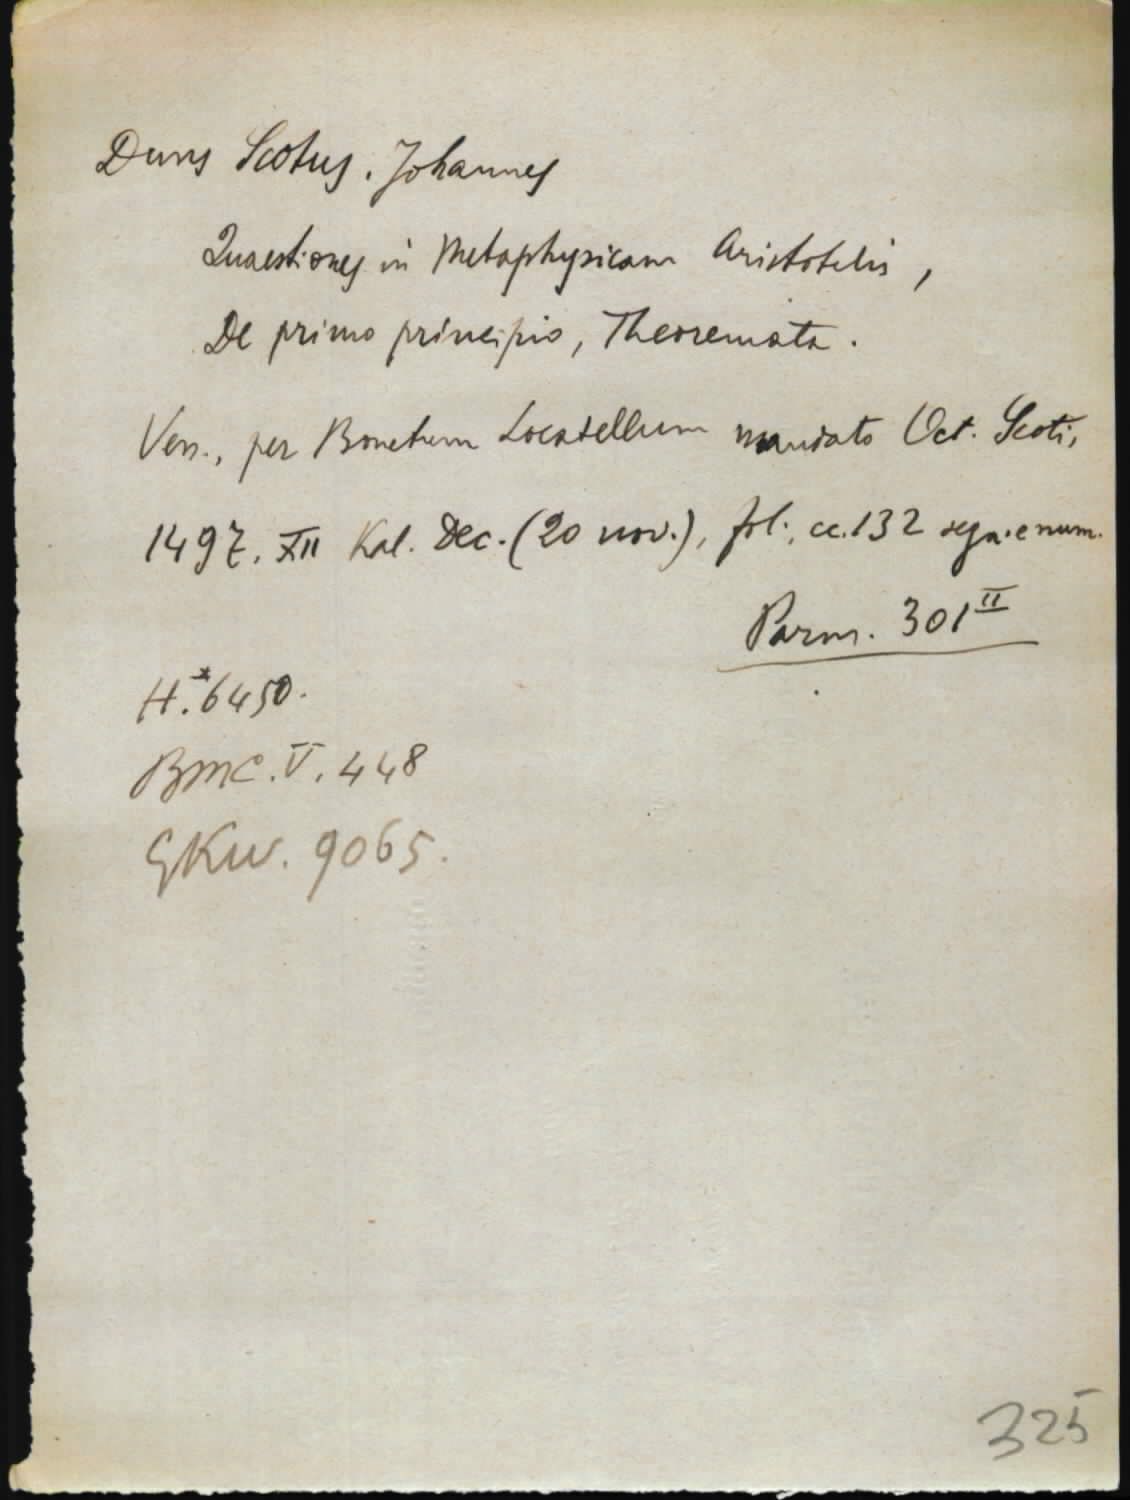 Duns Scotus, Johannes
Quaestiones in Metaphysicam Aristotelis,
De primo principio, Theoremata.
Ven., per Bonetum Locatellum mandato Oct. Scoti,
1497. XII Kal. Dec. (20 nov.), fol., cc. 132 segn. e num.
Parm. 301 II
H.* 6450.
BMC. V. 448
GKW. 9065.
325